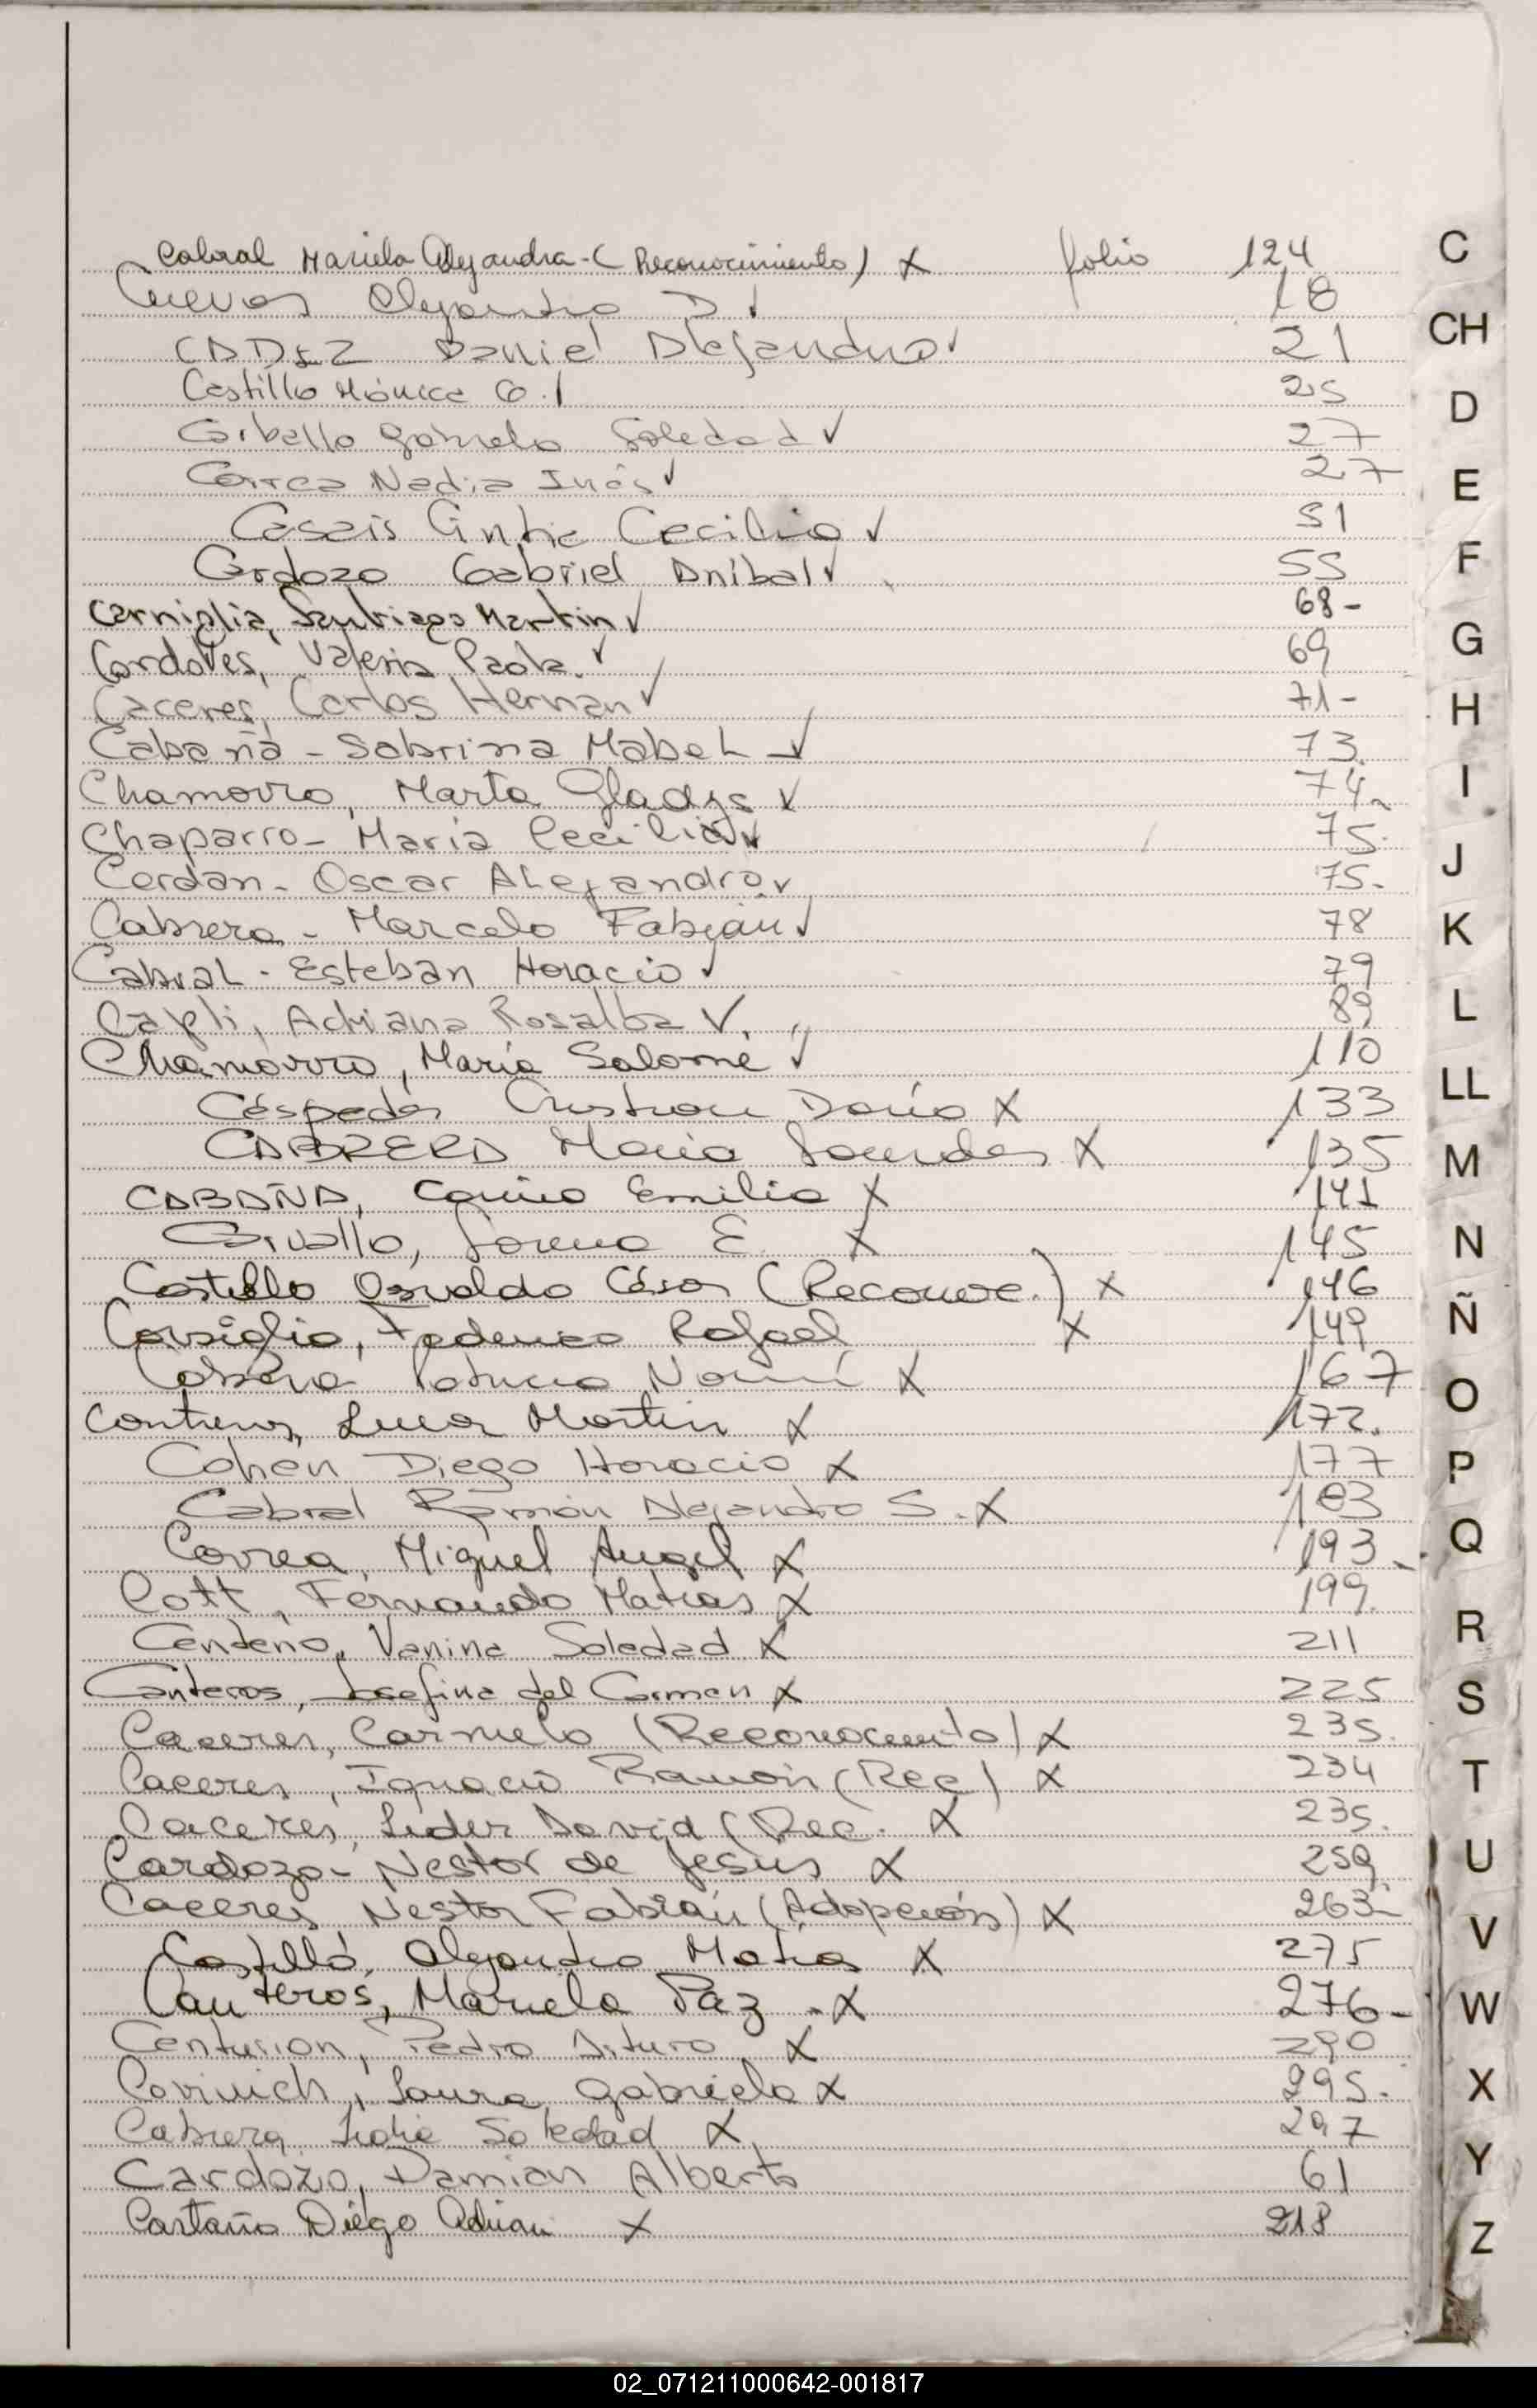 Cabral Mariela Alejandra - (Reconocimiento) X folio 124
Cuevas Alejandro D ✓ 18
CADEZ Daniel Alejandro ✓ 21
Castillo Mónica C. ✓ 25
Carballo Gabriela Soledad ✓ 27
Correa Nadia Inés ✓ 27
Casais Cintia Cecilia ✓ 51
Cardozo Gabriel Anibal ✓ 55
Carniglia, Santiago Martin ✓ 68-
Cordoves, Valeria Paola. ✓ 69
Caceres, Carlos Hernan ✓ 71-
Cabaña - Sabrina Mabel ✓ 73.
Chamorro, Marta Gladys ✓ 74
Chaparro - Maria Cecilia ✓ 75.
Cerdan - Oscar Alejandro ✓ 75.
Cabrera - Marcelo Fabian ✓ 78
Cabral - Esteban Horacio ✓ 79
Adriana Rosalba ✓ 89
Chamorro, María Salomé ✓ 110
Céspedes Cristian Darío X 133
CABRERA Maria Lourdes X 135
CABAÑA, Emilio X 141
Lorena E. X 145
Castillo Osvaldo César (Reconoc.) X 146
Corsiglia, Federico Rafael X 149
Patricia Noemí X 167
Contreras, Lucas Martin X 172.
Cohen Diego Horacio X 177
Cabral Ramón Alejandro S. X 183
Correa, Miguel Angel X 193
Cott, Fernando Matias X 199.
Centeno, Vanina Soledad X 211
Canteros, Josefina del Carmen X 225
Caceres, Carmelo (Reconocimiento) X 235.
Caceres, Ignacio Ramón (Rec) X 234
Caceres, Lider David (Rec. X 235.
Cardozo - Nestor de Jesús X 259
Caceres Nestor Fabián (Adopción) X 263-
Castillo, Alejandro Matias X 275
Canteros, Mariela Paz - X 276-
Centurion, Pedro Arturo X 290
Laura Gabriela X 295.
Cabrera, Lidia Soledad X 297
Cardozo, Damian Alberto 61
Castaño Diego Adrian X 218
C
CH
D
E
F
G
H
I
J
K
L
LL
M
N
Ñ
O
P
Q
R
S
T
U
V
W
X
Y
Z
02_071211000642-001817